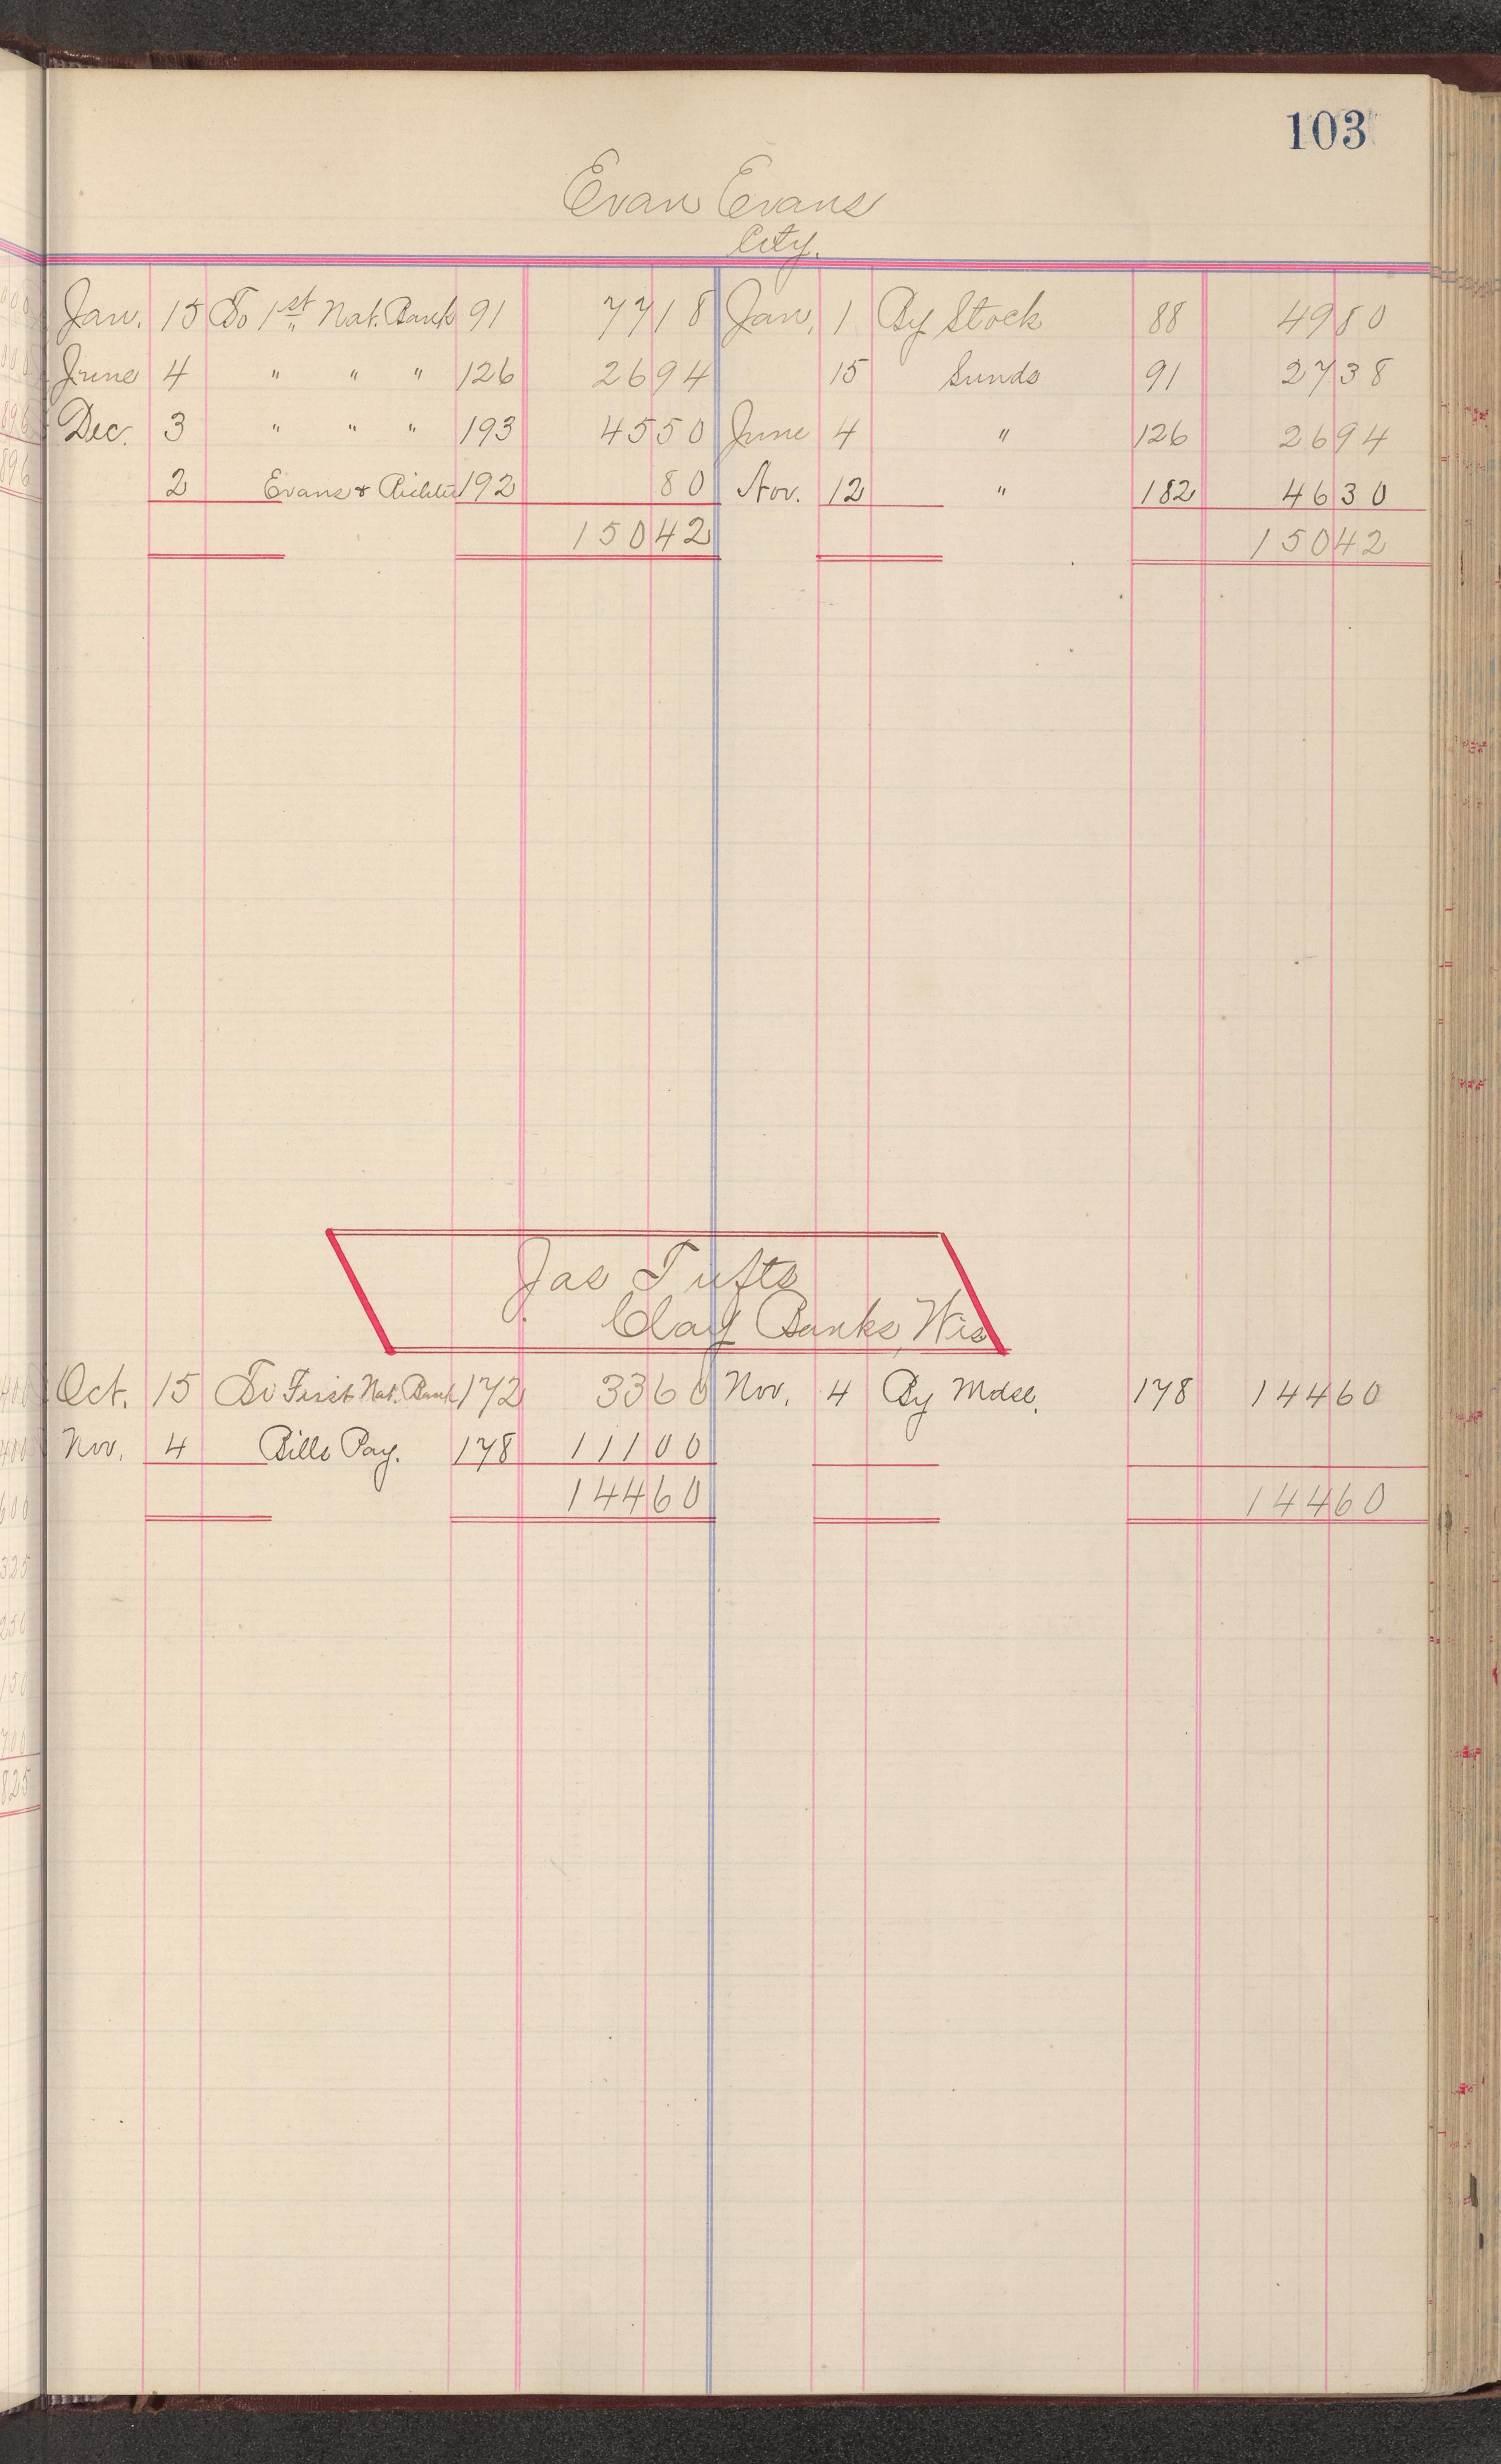 103
Evan Evans
City.
Jan. 15 To 1st Nat. Bank 91 77 18 Jan. 1 By Stock 88 49 80
June 4 " " " 126 26 94 15 Sunds 91 27 38
Dec. 3 " " " 193 45 50 June 4 " 126 26 94
2 Evans & 192 80 Nov. 12 " 182 46 30
150 42 150 42
Jas Tufts
Clay Banks, Wis
Oct. 15 To First Nat. Bank 172 33 60 Nov. 4 By Mdse. 178 144 60
Nov. 4 Bills Pay. 178 111 00
144 60 144 60